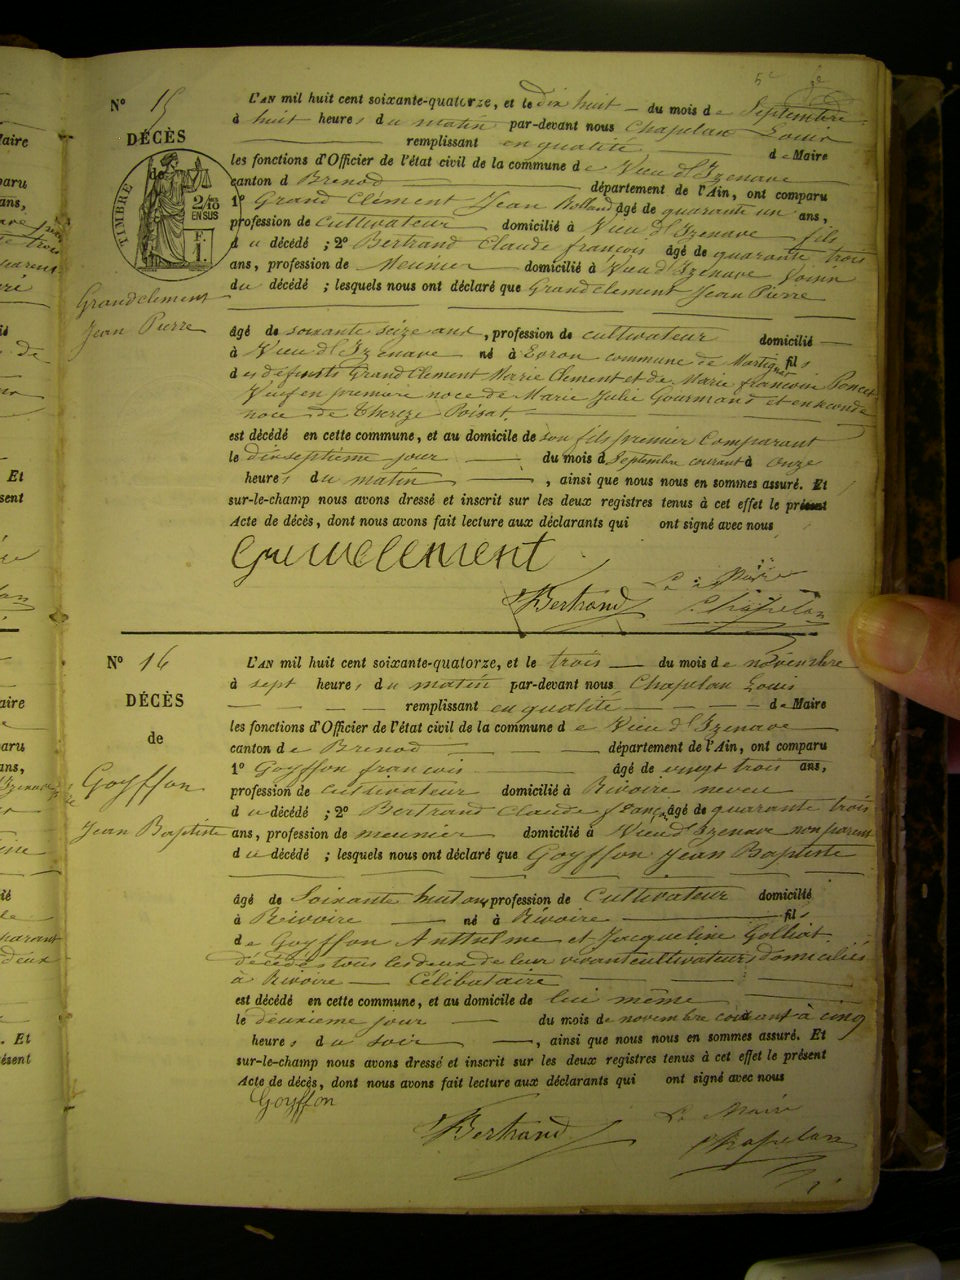 5e
N° 15
DÉCÈS
de
TIMBRE
2/10
EN SUS
F.
1.
Grandclement
Jean Pierre
L'AN mil huit cent soixante-quatorze, et le dix huit du mois de Septembre
à huit heures du matin par-devant nous Chapelan Louis
remplissant en qualité de Maire
les fonctions d'Officier de l'état civil de la commune de Vieu d'Izenave
canton d Brenod département de l'Ain, ont comparu
1° Grand Clément Jean Rolland âgé de quarante un ans,
profession de Cultivateur domicilié à Vieu d'Izenave fils
du décédé ; 2° Bertrand Claude françois âgé de quarante trois
ans, profession de Meunier domicilié à Vieu d'Izenave Voisin
du décédé ; lesquels nous ont déclaré que Grandclement Jean Pierre
âgé de soixante seize ans, profession de cultivateur domicilié
à Vieu d'Izenave né à Evron commune de Martignat fils
des défunts Grand Clément Marie Clement et de Marie francoise Poncet
Veuf en premiere noce de Marie Julie Gourmand et en seconde
noce de Thereze Poisat.
est décédé en cette commune, et au domicile de son fils premier Comparant
le dixseptième jour du mois d Septembre courant à onze
heures du matin , ainsi que nous nous en sommes assuré. Et
sur-le-champ nous avons dressé et inscrit sur les deux registres tenus à cet effet le présent
Acte de décès, dont nous avons fait lecture aux déclarants qui ont signé avec nous
Grandclement
Bertrand
Le Maire
Chapelan
N° 16
DÉCÈS
de
Goyffon
Jean Baptiste
L'AN mil huit cent soixante-quatorze, et le trois du mois de novembre
à sept heures du matin par-devant nous Chapelan Louis
remplissant en qualité de Maire
les fonctions d'Officier de l'état civil de la commune de Vieu d'Izenave
canton de Brenod département de l'Ain, ont comparu
1° Goyffon francois âgé de vingt trois ans,
profession de cultivateur domicilié à Rivoire neveu
du décédé ; 2° Bertrand Claude franç. âgé de quarante trois
ans, profession de meunier domicilié à Vieu d'Izenave non parent
du décédé ; lesquels nous ont déclaré que Goyffon Jean Baptiste
âgé de Soixante huit ans, profession de Cultivateur domicilié
à Rivoire né à Rivoire fils
de Goyffon Anthelme et Jacqueline Golliat
décédés tous les deux de leur vivant cultivateurs domiciliés
à Rivoire Célibataire
est décédé en cette commune, et au domicile de lui même
le deuxieme jour du mois de novembre courant à cinq
heures du soir , ainsi que nous nous en sommes assuré. Et
sur-le-champ nous avons dressé et inscrit sur les deux registres tenus à cet effet le présent
Acte de décès, dont nous avons fait lecture aux déclarants qui ont signé avec nous
Goyffon
Bertrand
Le Maire
Chapelan